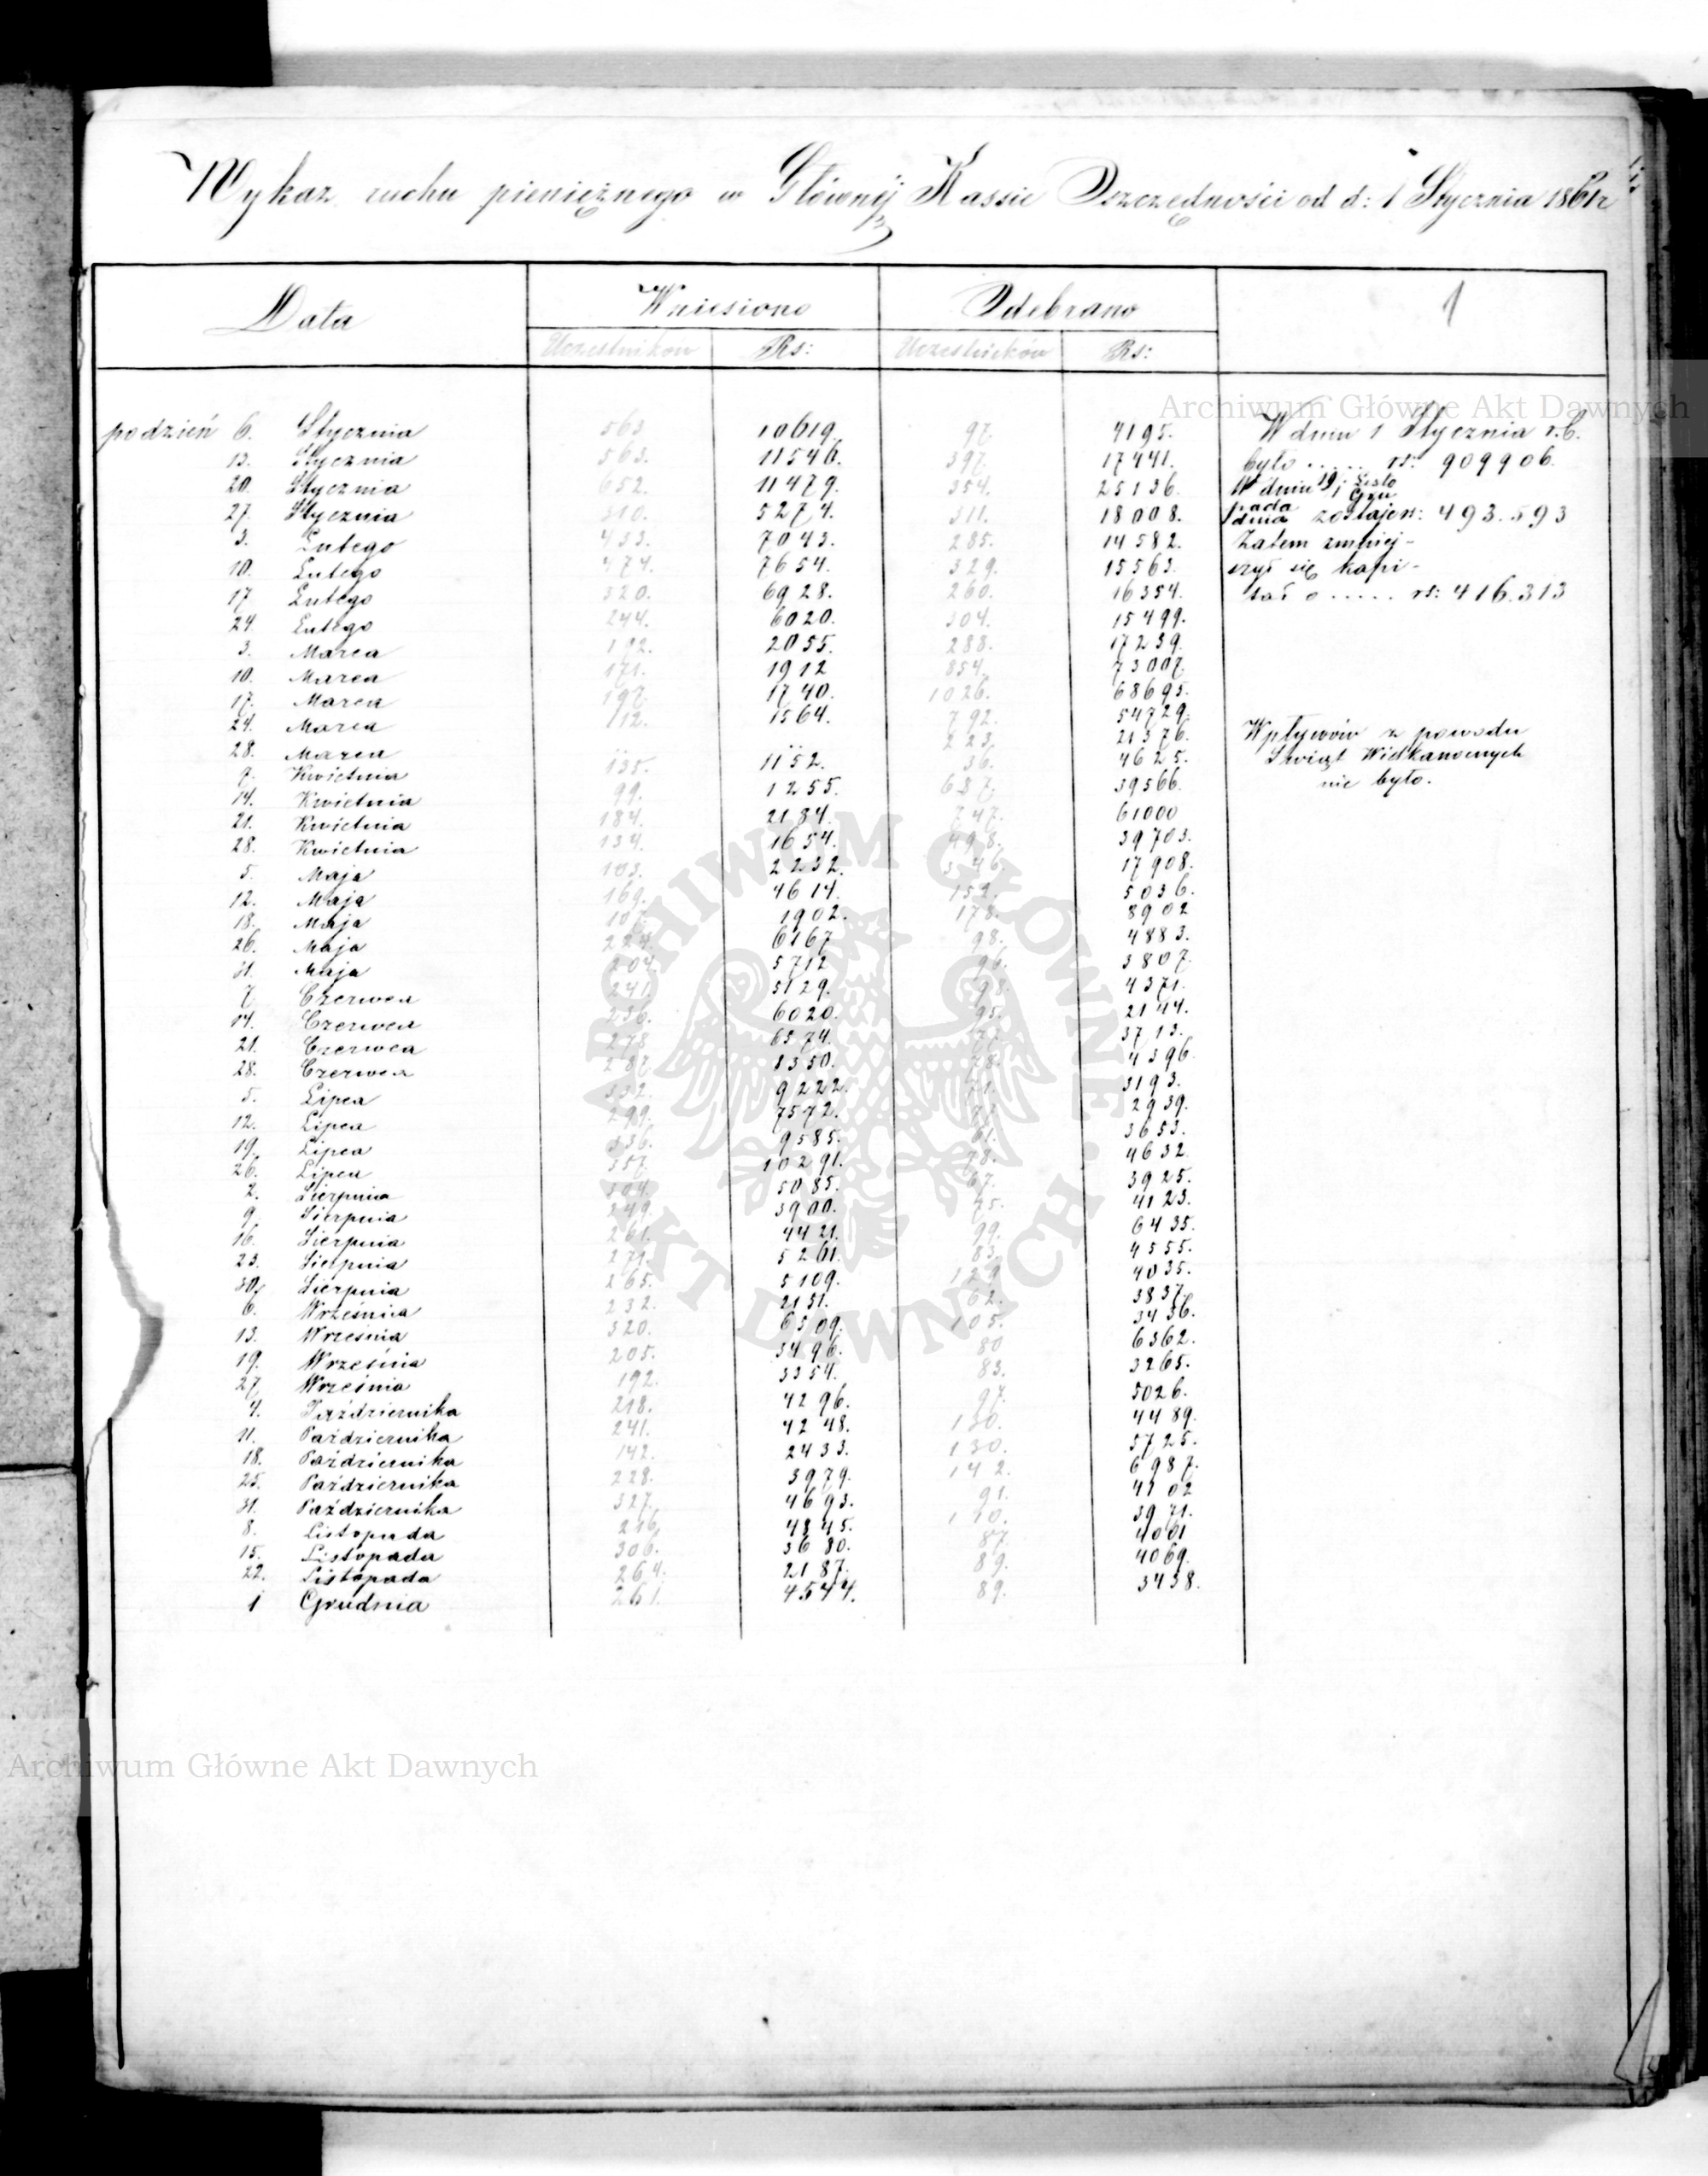 Wykaz ruchu pieniężnego w Głównéj Kassie Oszczędności od d: 1 Stycznia 1861 r
Data Wniesiono Odebrano 1
Uczestników Rs: Uczestników Rs:
Archiwum Główne Akt Dawnych
po dzień 6. Stycznia 563 10619. 97. 4195. W dniu 1 Stycznia r.b.
13. Stycznia 563. 11546. 397. 17441. było ..... rs: 909906.
20. Stycznia 652. 11479. 354. 25136. W dniu 19/1 Listo Gru
27. Stycznia 310. 5274. 311. 18008. pada dnia zostaje rs: 493.593
3. Lutego 433. 7043. 285. 14582. Zatem zmniej-
10. Lutego 474. 7654. 329. 15563. szył się kapi-
17 Lutego 320. 6928. 260. 16354. tał o ..... rs: 416.313
24. Lutego 244. 6020. 304. 15499.
3. Marca 192. 2055. 288. 17239.
10. Marca 171. 1912 854. 73007.
17. Marca 197. 1740. 1026. 68695.
24. Marca 112. 1564. 792. 54729.
28. Marca .. .. 223. 21376. Wpływów z powodu
7. Kwietnia 135. 1152. 36. 4625. Świąt Wielkanocnych
14. Kwietnia 99. 1255. 637. 39566. nie było.
21. Kwietnia 184. 2184. 747. 61000
28. Kwietnia 134. 1654. 498. 39703.
5. Maja 103. 2232. 346. 17908.
12. Maja 169. 4614. 152. 5036.
18. Maja 107. 1902. 178. 8902
26. Maja 224. 6167 98. 4883.
31. Maja 204. 5712 96. 3807.
7 Czerwca 241. 5129. 98. 4371.
14. Czerwca 236. 6020. 95. 2144.
21. Czerwca 273 6574. 3713.
28. Czerwca 287. 8350. 78. 4396.
5. Lipca 332. 9222. 3193.
12. Lipca 299. 7572. 2939.
19. Lipca 336. 9585. 61. 3653.
26. Lipca 357. 10291. 78. 4632
2. Sierpnia 304. 5085. 67. 3925.
9. Sierpnia 249. 3900. 75. 4123.
16. Sierpnia 261. 4421. 99. 6435.
23. Sierpnia 271. 5261. 83. 4555.
30. Sierpnia 265. 5109. 129 4035.
6. Września 232. 2131. 62. 3837.
13. Września 320. 6509. 105. 3436.
19. Września 205. 3496. 80 6362.
27. Września 192. 3354. 83. 3265.
4. Października 218. 4296. 97. 5026.
11. Października 241. 4248. 130. 4489.
18. Października 142. 2433. 130. 3725.
25. Października 228. 3979. 142. 6987.
31. Października 327. 4693. 91. 4702
8. Listopada 216. 4845. 110. 3971.
15. Listopada 306. 3680. 87. 4061
22. Listopada 264. 2187. 89. 4069.
1 Grudnia 261. 4544. 89. 3438.
ARCHIWUM GŁÓWNE AKT DAWNYCH
Archiwum Główne Akt Dawnych